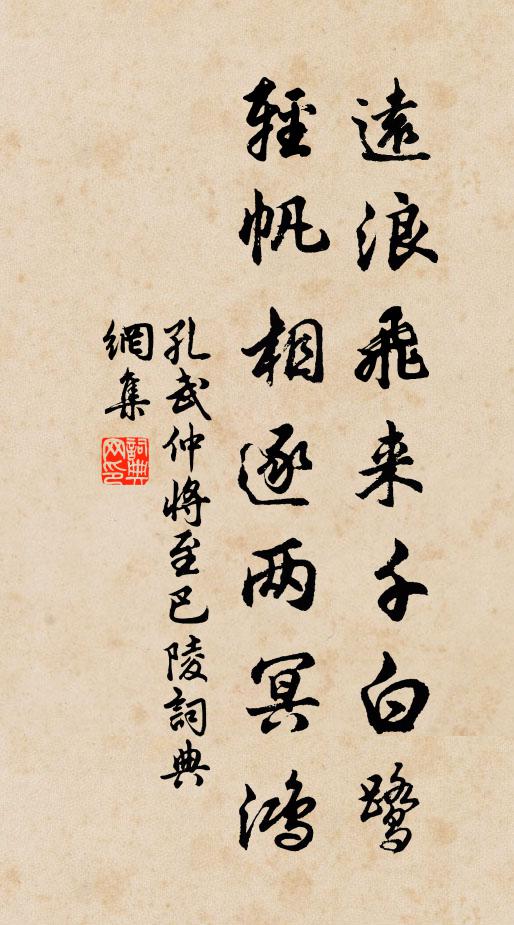 遠浪飛来千白鷺
輕帆相逐两冥鴻
孔武仲將至巴陵詞典
網集
詞典网印